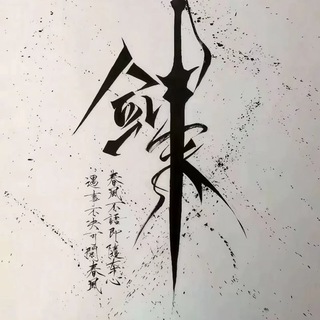 劍來
遇事不決可問春風
春風不語即隨本心